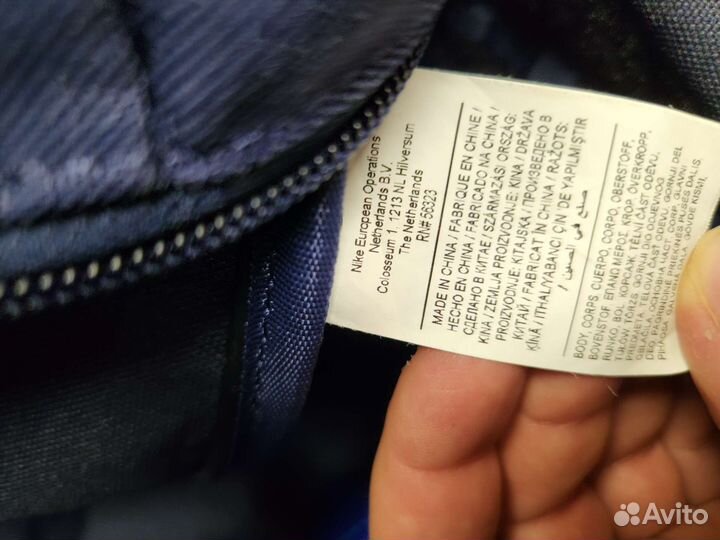 Nike European Operations
Netherlands B.V.
Colosseum 1, 1213 NL Hilversum
The Netherlands
RN#56323
MADE IN CHINA / FABRIQUE EN CHINE /
HECHO EN CHINA / FABRICADO NA CHINA /
СДЕЛАНО В КИТАЕ / SZÁRMAZÁSI ORSZÁG:
KÍNA / ZEMLJA PROIZVODNJE: KINA / DRŽAVA
PROIZVODNJE: KITAJSKA / ПРОИЗВЕДЕНО В
КИТАЙ / FABRICAT ÎN CHINA / RAŽOTS:
ĶĪNĀ / İTHAL/YABANCI ÇİN DE YAPILMIŞTIR
/ صنع في الصين
BODY CORPS CUERPO CORPO OBERSTOFF,
BOVENSTOF ΕΠΑΝΩ ΜΕΡΟΣ KROP ÖVERKROPP,
Avito